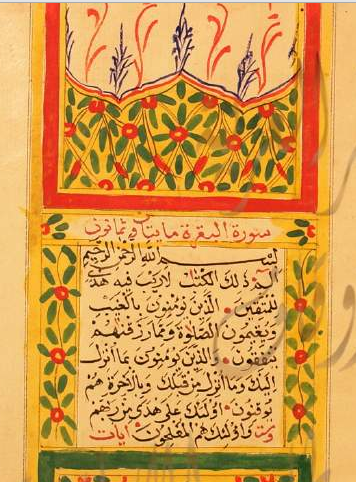 سورة البقرة مايتان وثمانون
بسم الله الرحمن الرحيم
الم ذلك الكتٰب لا ريب فيه هدى
للمتقين الذين يؤمنون بالغيب
ويقيمون الصلوة ومما رزقنهم
ينفقون والذين يؤمنون بما انزل
اليك وما انزل من قبلك وبالاخرة هم
يوقنون اولئك على هدى من ربهم
واولئك هم المفلحون آيات